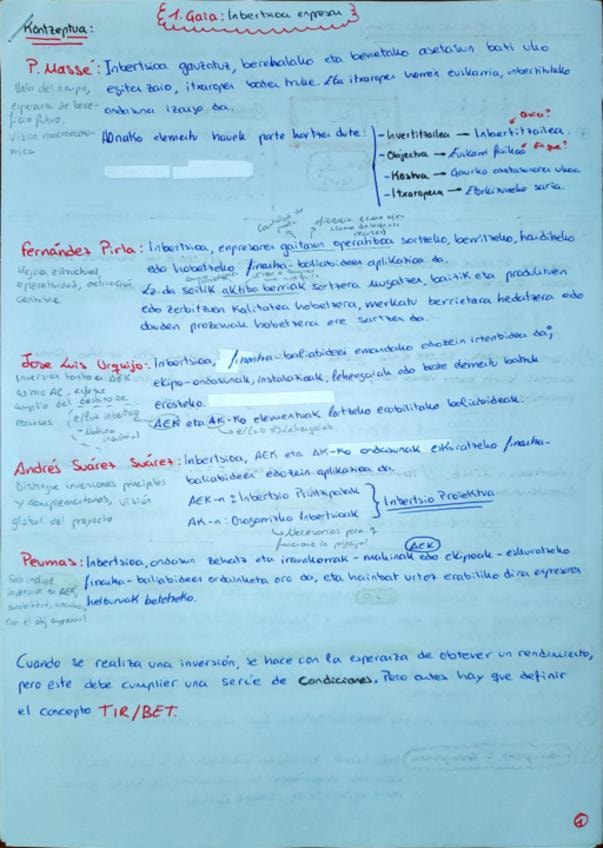 {1. Gaia: Inbertsioa enpresan}
Kontzeptua:
P. Massé: Inbertsioa gauzatuz, berehalako eta benetako asetasun bati uko
egiten zaio, itxaropen baten truke. Eta itxaropen horren euskarria, inbertitutako
ondasuna izango da.
Valor del tiempo,
esperanza de bene-
ficio futuro,
Visión macroecono-
mica
Adnako elementu hauek parte hartzen dute:
- Invertitzailea → Inbertitzailea.
Quién?
- Objectua → Euskarri fisikoa
En que?
- Kostua → Gaurko asetasunaren ukoa
- Itxaropena → Etorkizuneko saria.
Cantidad de
Fernández Pirla: Inbertsioa, enpresaren gaitasun operatiboa sortzeko, berritzeko, handitzeko
edo hobetzeko finantza-baliabideen aplikazioa da.
Ez da soilik aktibo berriak sortzera mugatzen, baizik eta produktuen
edo zerbitzuen kalitatea hobetzera, merkatu berrietara hedatzera edo
dauden prozesuak hobetzera ere sartzen da.
Mejora estructural,
operatividad,
contable
Jose Luis Urquijo: Inbertsioa, finantza-baliabideei emandako edozein irtenbidea da;
ekipo-ondasunak, instalazioak, lehengaiak edo beste elementu batzuk
erosteko.
AEK eta AK-ko elementuak lortzeko erabilitako baliabideak.
Inversión tanto en AEK
como AC, enfoque
amplio del destino de
recursos
Makina
industrial
Andrés Suárez Suárez: Inbertsioa, AEK eta AK-ko ondasunak eskuratzeko finantza-
baliabideen edozein aplikazioa da.
AEK-n: Inbertsio Printzipalak
AK-n: Osagarrizko Inbertsioak
Inbertsio Proiektua
Necesarios para q
funcione la principal
Distingue inversiones principales
y complementarias, visión
global del proyecto
Peumas: Inbertsioa, ondasun zehatz eta iraunkorrak - makinak edo ekipoak - eskuratzeko
AEK
finantza-baliabideen ordainketa oro da, eta hainbat urtez erabiliko dira enpresaren
helburuak betetzeko.
Solo incluye
inversión en AEK,
con el obj empresarial
Cuando se realiza una inversión, se hace con la esperanza de obtener un rendimiento,
pero este debe cumplier una serie de condiciones. Pero antes hay que definir
el concepto TIR/BET.
1